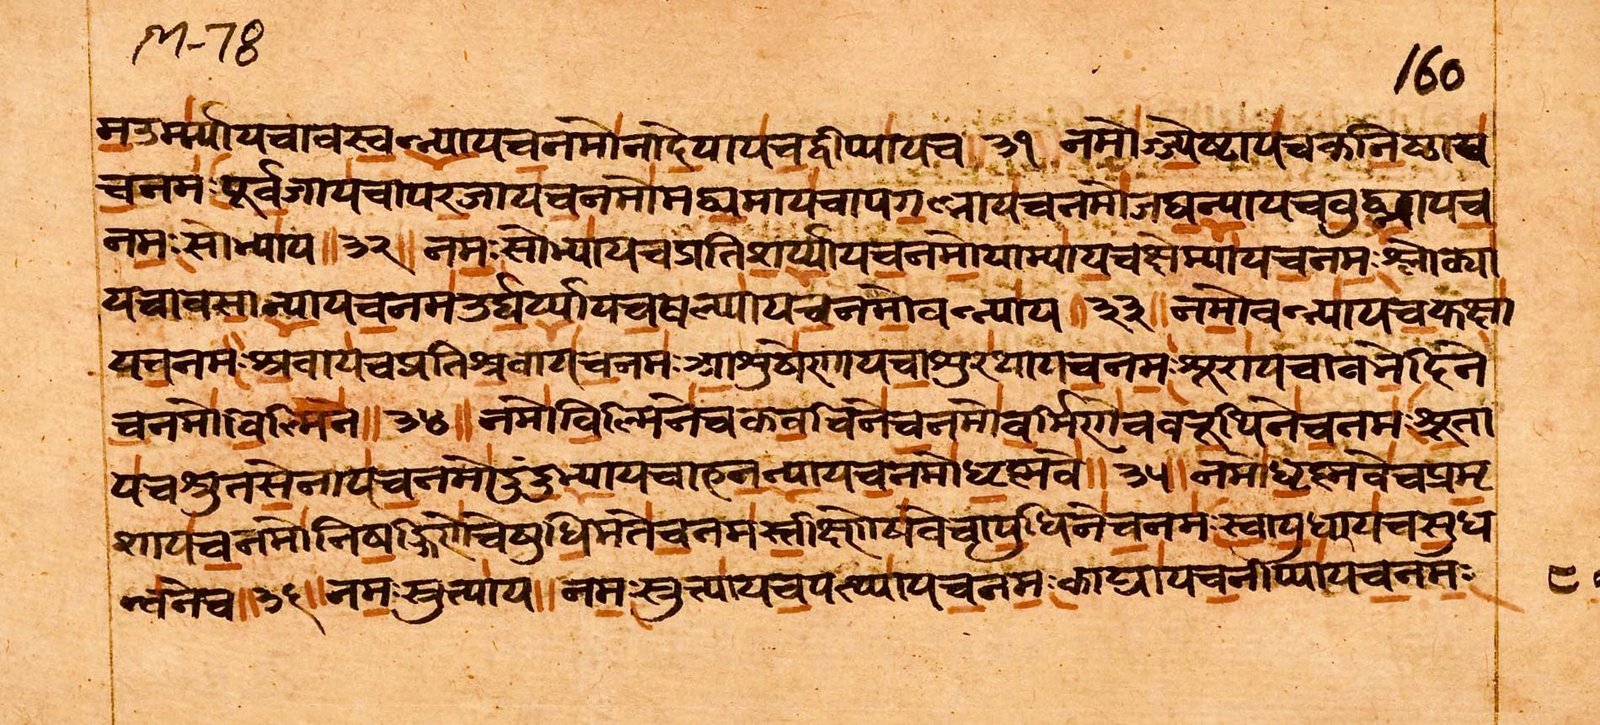 M-78
160
मऽऊर्म्यायचावस्वन्यायचनमोनादेयायचद्वीप्यायच ३१ नमोज्ज्येष्टायचकनिष्ठाय
चनमःपूर्वजायचापरजायचनमोमध्यमायचापगल्भायचनमोजघन्यायचवुद्ध्यायच
नमःसोभ्याय॥३२॥नमःसोभ्यायचप्रतिशर्य्यायचनमोयाम्यायचक्षेम्यायचनमःश्लोक्या
यचावसान्यायचनमऽउर्वर्य्यायचखल्यायचनमोवन्न्याय॥३३॥नमोवन्न्यायचकक्ष्या
यचनमःश्रवायचप्रतिश्रवायचनमःआशुषेणायचाशुरथायचनमःशूरायचावभेदिने
चनमोविल्मिने॥३४॥नमोविल्मिनेचकवचिनेचनमोवर्मिणेचवरूथिनेचनमःश्रुता
यचश्रुतसेनायचनमोदुंदुभ्यायचाहनन्यायचनमोधृष्णवे॥३५॥नमोधृष्णवेचप्रमृ
शायचनमोनिषङ्गिणेचेषुधिमतेचनमस्तीक्ष्णेषवेचायुधिनेचनमःस्वायुधायचसुध
न्वनेच॥३६॥नमःस्रुत्याय॥नमःस्रुत्यायचपत्थ्यायचनमःकाट्यायचनीप्यायचनमः